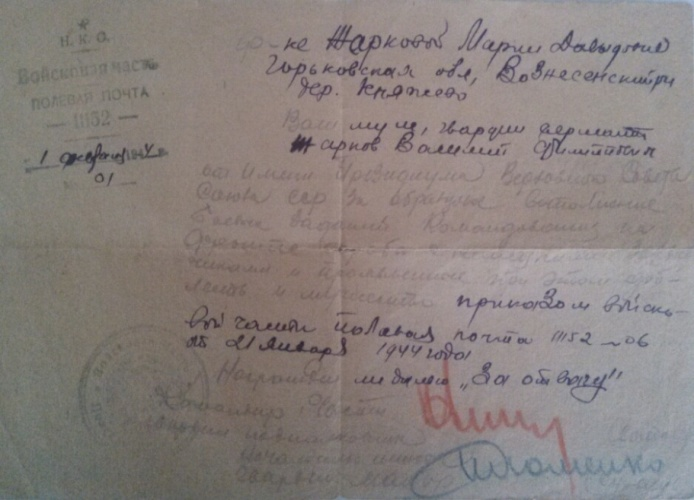 Н. К. О.
Войсковая часть
ПОЛЕВАЯ ПОЧТА
— 11152 —
01
гр-ке Жарковой Марии Давыдовне
Горьковская обл, Вознесенский р-н
дер. Княжево
Ваш муж, гвардии сержант
Жарков Василий
от имени Президиума Верховного Совета
Союза сср за образцовое выполнение
боевых заданий Командования на
фронте борьбы с немецкими
и проявленное при этом доб-
лесть и мужество приказом войско-
вой части полевая почта 11152-06
от 21 января 1944 года
Награжден медалью „За отвагу"
Командир части
гвардии подполковник
Начальник штаба
Гвардии майор